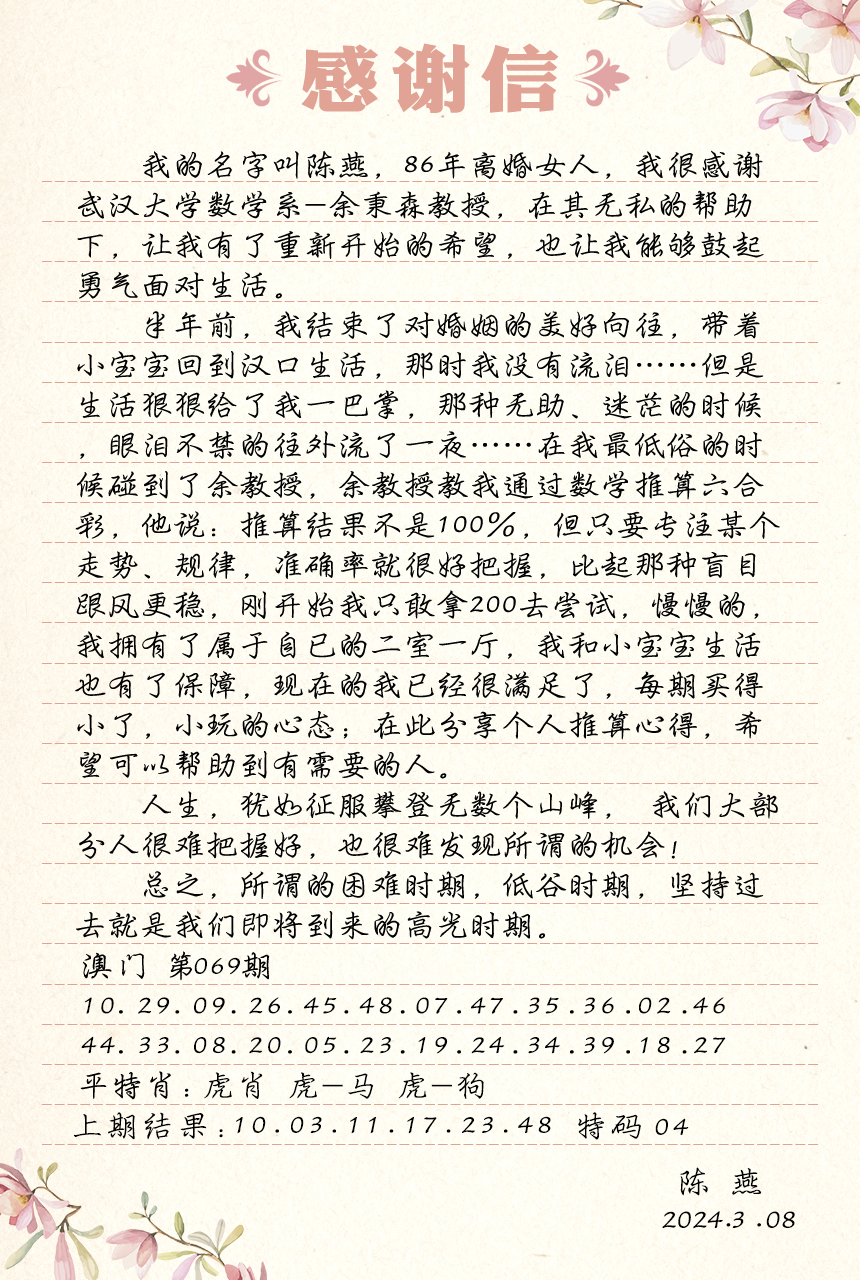 感谢信
我的名字叫陈燕，86年离婚女人，我很感谢
武汉大学数学系-余秉森教授，在其无私的帮助
下，让我有了重新开始的希望，也让我能够鼓起
勇气面对生活。
半年前，我结束了对婚姻的美好向往，带着
小宝宝回到汉口生活，那时我没有流泪……但是
生活狠狠给了我一巴掌，那种无助、迷茫的时候
，眼泪不禁的往外流了一夜……在我最低俗的时
候碰到了余教授，余教授教我通过数学推算六合
彩，他说：推算结果不是100%，但只要专注某个
走势、规律，准确率就很好把握，比起那种盲目
跟风更稳，刚开始我只敢拿200去尝试，慢慢的，
我拥有了属于自已的二室一厅，我和小宝宝生活
也有了保障，现在的我已经很满足了，每期买得
小了，小玩的心态；在此分享个人推算心得，希
望可以帮助到有需要的人。
人生，犹如征服攀登无数个山峰， 我们大部
分人很难把握好，也很难发现所谓的机会！
总之，所谓的困难时期，低谷时期，坚持过
去就是我们即将到来的高光时期。
澳门 第069期
10.29.09.26.45.48.07.47.35.36.02.46
44.33.08.20.05.23.19.24.34.39.18.27
平特肖：虎肖 虎-马 虎-狗
上期结果：10.03.11.17.23.48 特码 04
陈 燕
2024.3.08